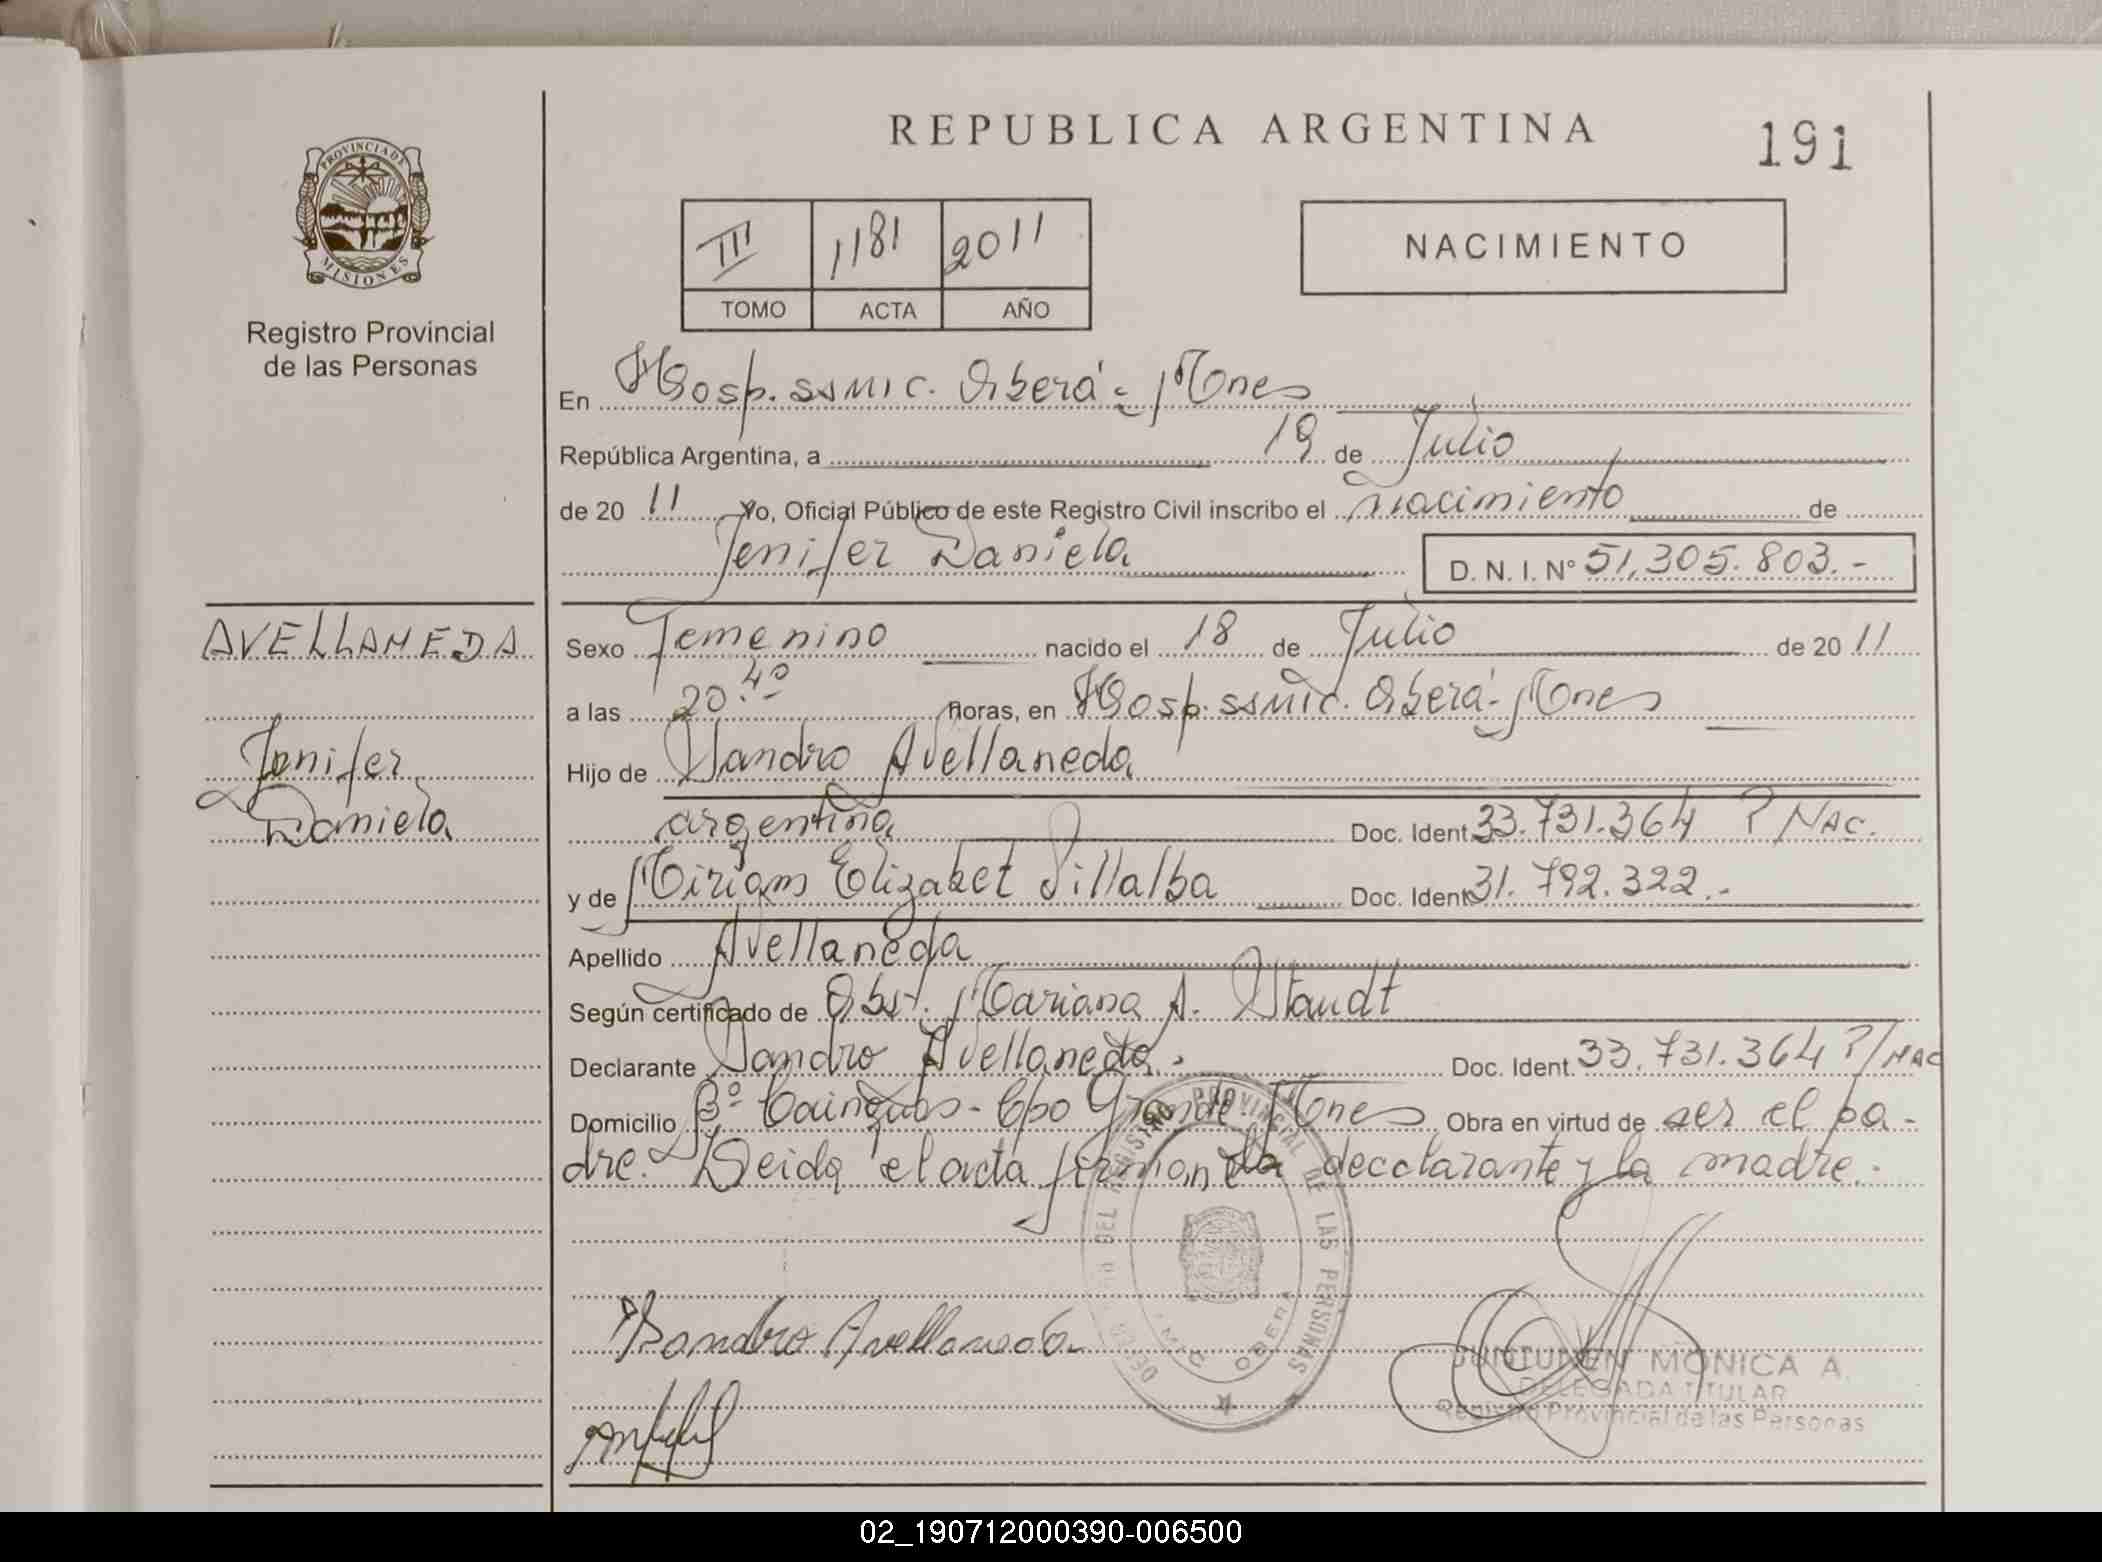 REPUBLICA ARGENTINA
191
PROVINCIA DE
MISIONES
Registro Provincial
de las Personas
III 1181 2011
TOMO ACTA AÑO
NACIMIENTO
En Hosp. SSMIC. Oberá - Mones
República Argentina, a 19 de Julio
de 20 11 Yo, Oficial Público de este Registro Civil inscribo el nacimiento de
Jenifer Daniela D. N. I. N° 51.305.803.-
AVELLANEDA
Jenifer
Daniela
Sexo Femenino nacido el 18 de Julio de 20 11
a las 20.40 horas, en Hosp. SSMIC. Oberá - Mones
Hijo de Sandro Avellaneda
argentina Doc. Ident. 33.731.364 P/ Nac.
y de Miriam Elizabet Villalba Doc. Ident. 31.792.322.-
Apellido Avellaneda
Según certificado de Obst. Mariana A. Staudt
Declarante Sandro Avellaneda. Doc. Ident. 33.731.364 P/NAC
Domicilio Bº Cainguas - Cpo Grande Mones Obra en virtud de ser el pa-
dre. Leida el acta firman la declarante y la madre.
REGISTRO PROVINCIAL DE LAS PERSONAS
OBERA
Sandro Avellaneda
JUNTUNEN MONICA A.
DELEGADA TITULAR
Registro Provincial de las Personas
02_190712000390-006500